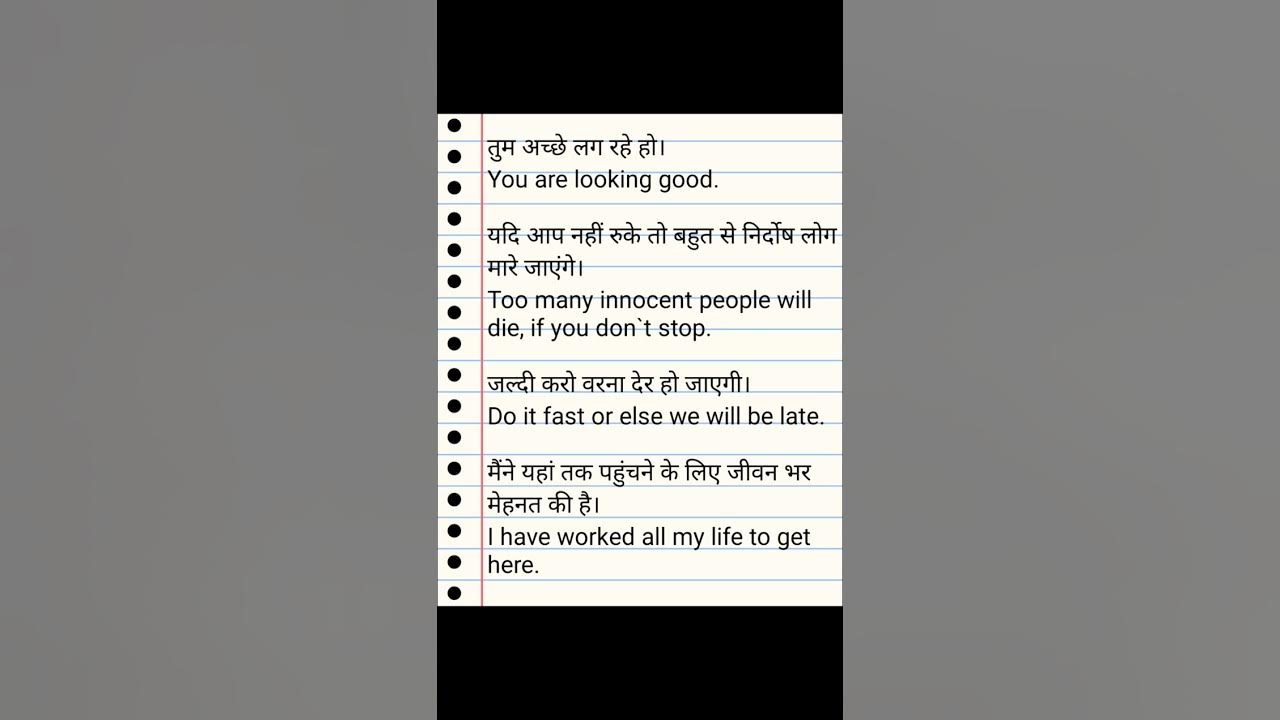 तुम अच्छे लग रहे हो।
You are looking good.
यदि आप नहीं रुके तो बहुत से निर्दोष लोग
मारे जाएंगे।
Too many innocent people will
die, if you don`t stop.
जल्दी करो वरना देर हो जाएगी।
Do it fast or else we will be late.
मैंने यहां तक पहुंचने के लिए जीवन भर
मेहनत की है।
I have worked all my life to get
here.